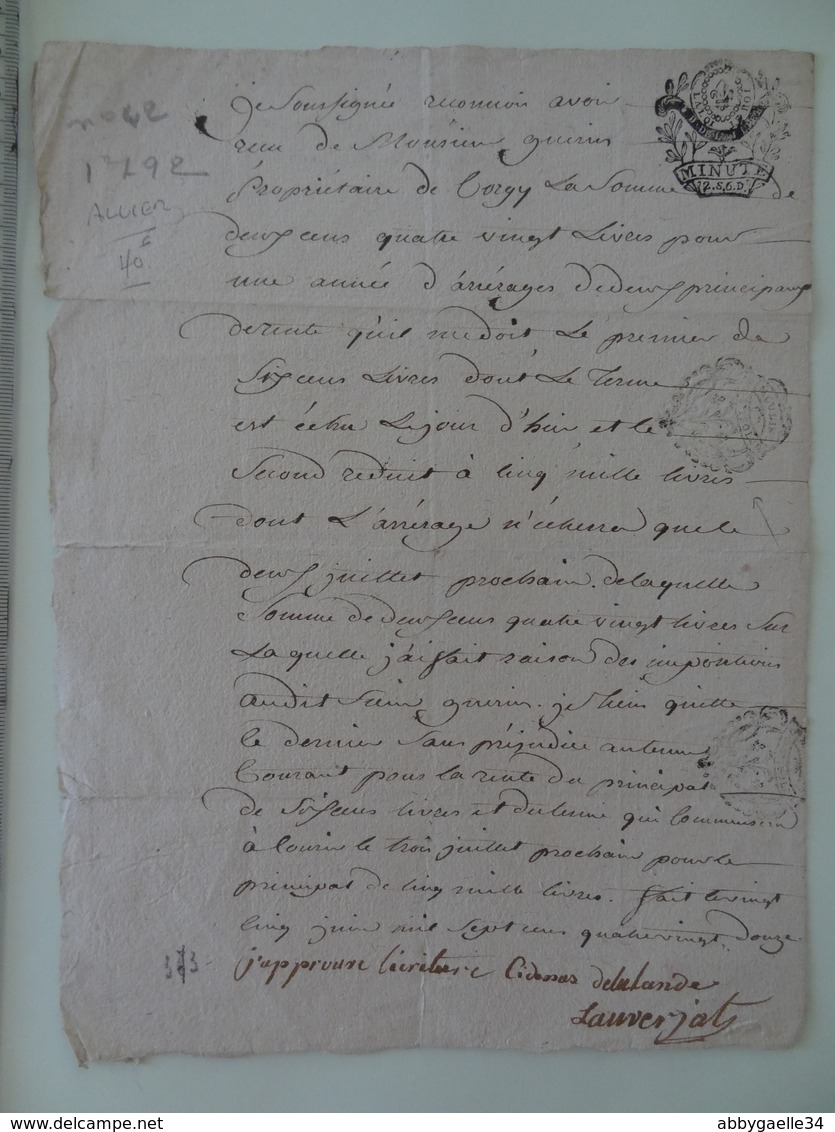 n° 42
1792
ALLIER
40 €
LA LOI ET LE ROI
MINUTE
12.S.6.D.
Je Soussignée reconnois avoir
recu de Monsieur guerin
Propriétaire de Torgy La Somme de
deux cens quatre vingt Livres pour
une année d'arrérages de deux principaux
de rente qu'il me doit Le premier de
Six cens Livres dont Le Terme
est échu Le jour d'hier et le
Second reduit à Cinq mille livres
dont L'arrérage n'écherra que le
deux juillet prochain. de laquelle
Somme de deux cens quatre vingt livres Sur
La quelle j'ai fait raison des impositions
audit Sieur guerin. je tiens quitte
le dernier Sans préjudice au terme
Courant pour la rente du principal
de Six cens livres et du terme qui Commencera
à Courir le trois juillet prochain pour le
principal de Cinq mille livres. fait le vingt
Cinq juin mil Sept cens quatre vingt douze
j'approuve l'écriture Cidessus delalande
Lauverjat
abbygaelle34